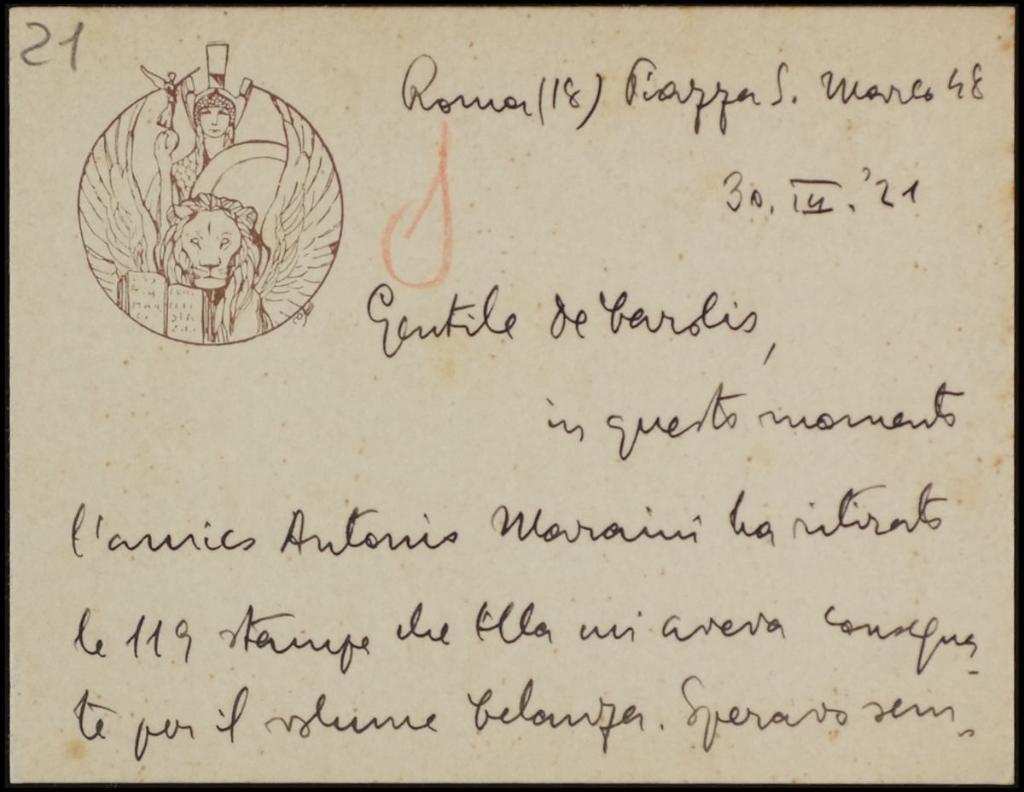 21
Roma (18) Piazza S. Marco 48
30. III. '21
Gentile de Carolis,
in questo momento
l'amico Antonio Maraini ha ritirato
le 119 stampe che Ella mi aveva consegna-
te per il volume Celanza. Speravo sem-